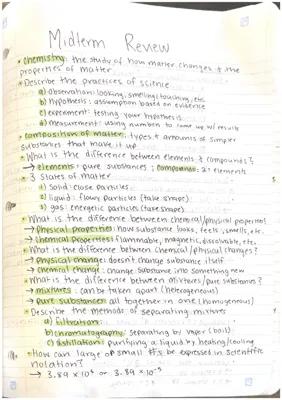 Midterm Review
• Chemistry: the study of how matter changes & the
properties of matter
• Describe the practices of science
a) Observation: looking, smelling, touching, etc.
b) Hypothesis: assumption based on evidence
c) experiment: testing your hypothesis
d) measurement: using numbers to come up w/ results
• Composition of matter: types & amounts of simpler
substances that make it up
• What is the difference between elements & compounds?
→ Elements: pure substances; compounds: 2+ elements
• 3 States of matter
a) Solid: close particles
b) liquid: flowy particles (take shape)
c) gas: energetic particles (take shape)
• What is the difference between chemical/physical properties?
→ Physical properties: how substance looks, feels, smells, etc.
→ Chemical Properties: flammable, magnetic, dissolvable, etc.
• What is the difference between chemical/physical changes?
→ Physical change: doesn't change substance itself
→ Chemical change: change substance into something new
• What is the difference between mixtures/pure substances?
→ mixtures: can be taken apart (heterogeneous)
→ Pure substances: all together in one (homogenous)
• Describe the methods of separating mixtures
a) filtration:
b) chromatography: separating by vapor (boil)
c) distillation: purifying a liquid by heating/cooling
• How can large or small #'s be expressed in scientific
notation?